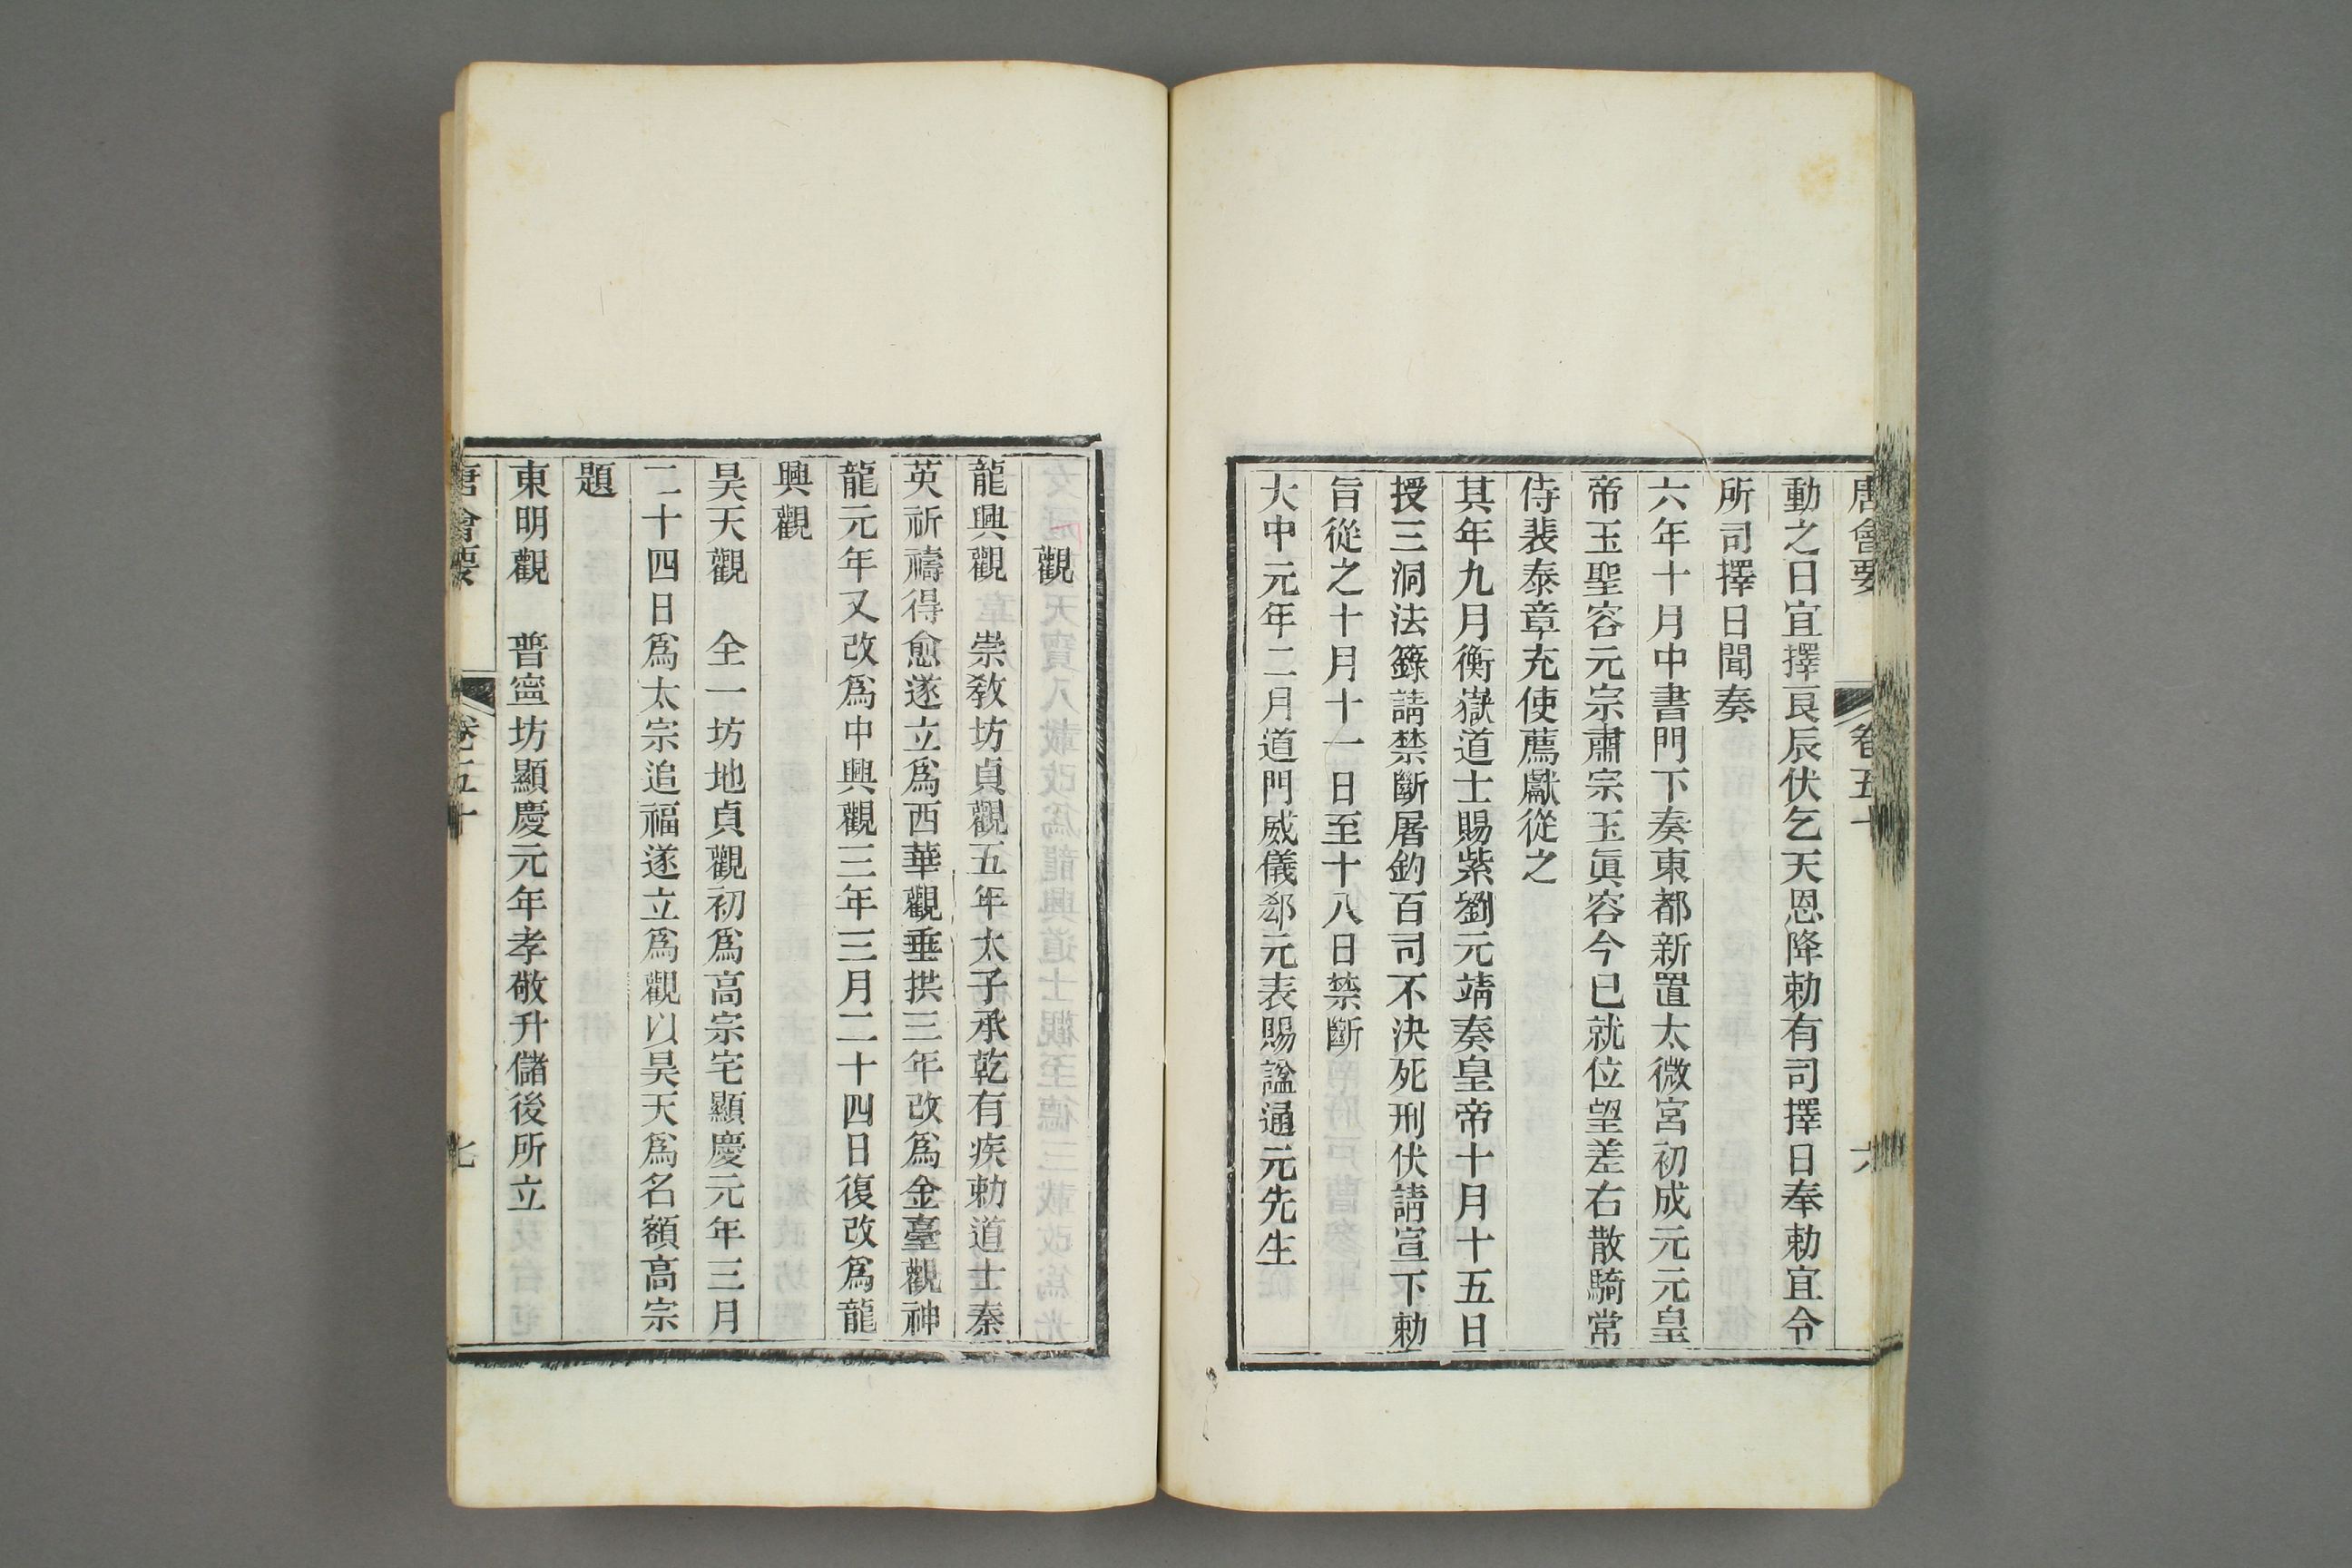 唐會要 卷五十 六
動之日宜擇良辰伏乞天恩降勅有司擇日奉勅宜令
所司擇日聞奏
六年十月中書門下奏東都新置太微宮初成元元皇
帝玉聖容元宗肅宗玉眞容今已就位望差右散騎常
侍裴泰章充使薦獻從之
其年九月衡嶽道士賜紫劉元靖奏皇帝十月十五日
授三洞法籙請禁斷屠釣百司不決死刑伏請宣下勅
旨從之十月十一日至十八日禁斷
大中元年二月道門威儀郄元表賜諡通元先生
觀
龍興觀　崇敎坊貞觀五年太子承乾有疾勅道士秦
英祈禱得愈遂立爲西華觀垂拱三年改爲金臺觀神
龍元年又改爲中興觀三年三月二十四日復改爲龍
興觀
昊天觀　全一坊地貞觀初爲高宗宅顯慶元年三月
二十四日爲太宗追福遂立爲觀以昊天爲名額高宗
題
東明觀　普寍坊顯慶元年孝敬升儲後所立
唐會要 卷五十 七